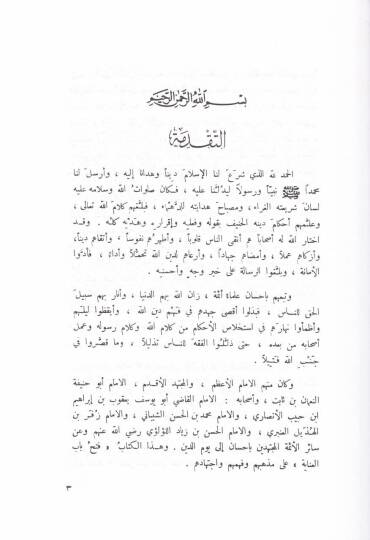 بسم الله الرحمن الرحيم
التقدمة
الحمد لله الذي شرع لنا الإسلام ديناً وهدانا إليه ، وأرسل لنا
محمداً ﷺ نبيّاً ورسولاً ليدلّنا عليه ، فكان صلوات الله وسلامه عليه
لسان شريعته الغراء ، ومصباح هدايته ، فبلّغهم كلام الله تعالى ،
وعلّمهم أحكام دينه الحنيف بقوله وفعله وإقراره وهديه كله . وقد
اختار الله له أصحاباً هم أنقى الناس قلوباً ، وأطهرهم نفوساً وأتقاهم ديناً،
وأزكاهم عملاً ، وأمضاهم جهاداً ، وأرعاهم لدين الله تحمّلاً وأداءً ، فأدّوا
الأمانة ، وبلّغوا الرسالة على خير وجه وأحسنه .
وتبعهم بإحسان علماء أئمة ، زان الله بهم الدنيا ، وأنار بهم سبيل
الحق للناس ، فبذلوا أقصى جهدهم في فهم دين الله ، وأيقظوا ليلهم
وأظمأوا نهارهم في استخلاص الأحكام من كلام الله وكلام رسوله وعمل
أصحابه من بعده ، حتى ذلّلوا الفقه للناس تذليلاً ، وما قصّروا في
جنب الله فتيلاً .
وكان منهم الامام الأعظم ، والمجتهد الأقدم ، الامام أبو حنيفة
النعمان بن ثابت ، وأصحابه : الامام القاضي أبو يوسف يعقوب بن إبراهيم
ابن حبيب الأنصاري ، والامام محمد بن الحسن الشيباني ، والامام زفر بن
الهذيل العنبري ، والامام الحسن بن زياد اللؤلؤي رضي الله عنهم وعن
سائر الأئمة المجتهدين بإحسان إلى يوم الدين . وهذا الكتاب « فتح باب
العناية » على مذهبهم وفهمهم واجتهادهم .
٣